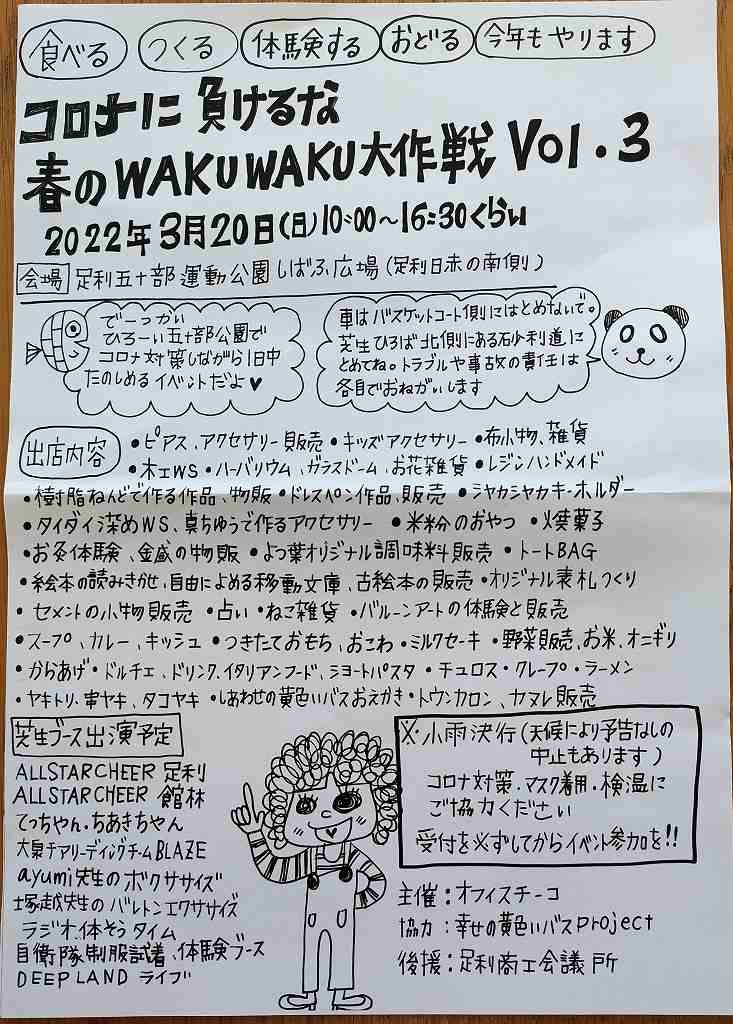 食べる つくる 体験する おどる 今年もやります
コロナに負けるな
春のWAKUWAKU大作戦 Vol.3
2022年3月20日(日)10:00~16:30くらい
会場 足利五十部運動公園しばふ広場(足利日赤の南側)
でーっかい
ひろーい五十部公園で
コロナ対策しながら1日中
たのしめるイベントだよ♥
車はバスケットコート側にはとめないで。
芝生ひろば北側にある砂利道に
とめてね。トラブルや事故の責任は
各自でおねがいします
出店内容 •ピアス、アクセサリー販売 •キッズアクセサリー •布小物、雑貨
•木工WS •ハーバリウム、ガラスドーム、お花雑貨 •レジンハンドメイド
•樹脂ねんどで作る作品、物販 •ドレスペン作品、販売 •シャカシャカキーホルダー
•タイダイ染めWS、真ちゅうで作るアクセサリー •米粉のおやつ •焼菓子
•お灸体験、金盛の物販 •よつ葉オリジナル調味料販売 •トートBAG
•絵本の読みきかせ、自由によめる移動文庫、古絵本の販売 •オリジナル表札つくり
•セメントの小物販売 •占い •ねこ雑貨 •バルーンアートの体験と販売
•スープ、カレー、キッシュ •つきたておもち、おこわ •ミルクセーキ •野菜販売、お米、オニギリ
•からあげ •ドルチェ、ドリンク、イタリアンフード、ショートパスタ •チュロス •クレープ •ラーメン
•ヤキトリ、串ヤキ、タコヤキ •しあわせの黄色いバスおえかき •トゥンカロン、カヌレ販売
芝生ブース出演予定
ALLSTARCHEER 足利
ALLSTARCHEER 館林
てっちゃん・ちあきちゃん
大泉チアリーディングチームBLAZE
ayumi先生のボクササイズ
塚越先生のバレトンエクササイズ
ラジオ体そうタイム
自衛隊制服試着、体験ブース
DEEPLAND ライブ
※小雨決行(天候により予告なしの
中止もあります)
コロナ対策・マスク着用・検温に
ご協力ください
受付を必ずしてからイベント参加を!!
主催:オフィスチーコ
協力:幸せの黄色いバスproject
後援:足利商工会議所